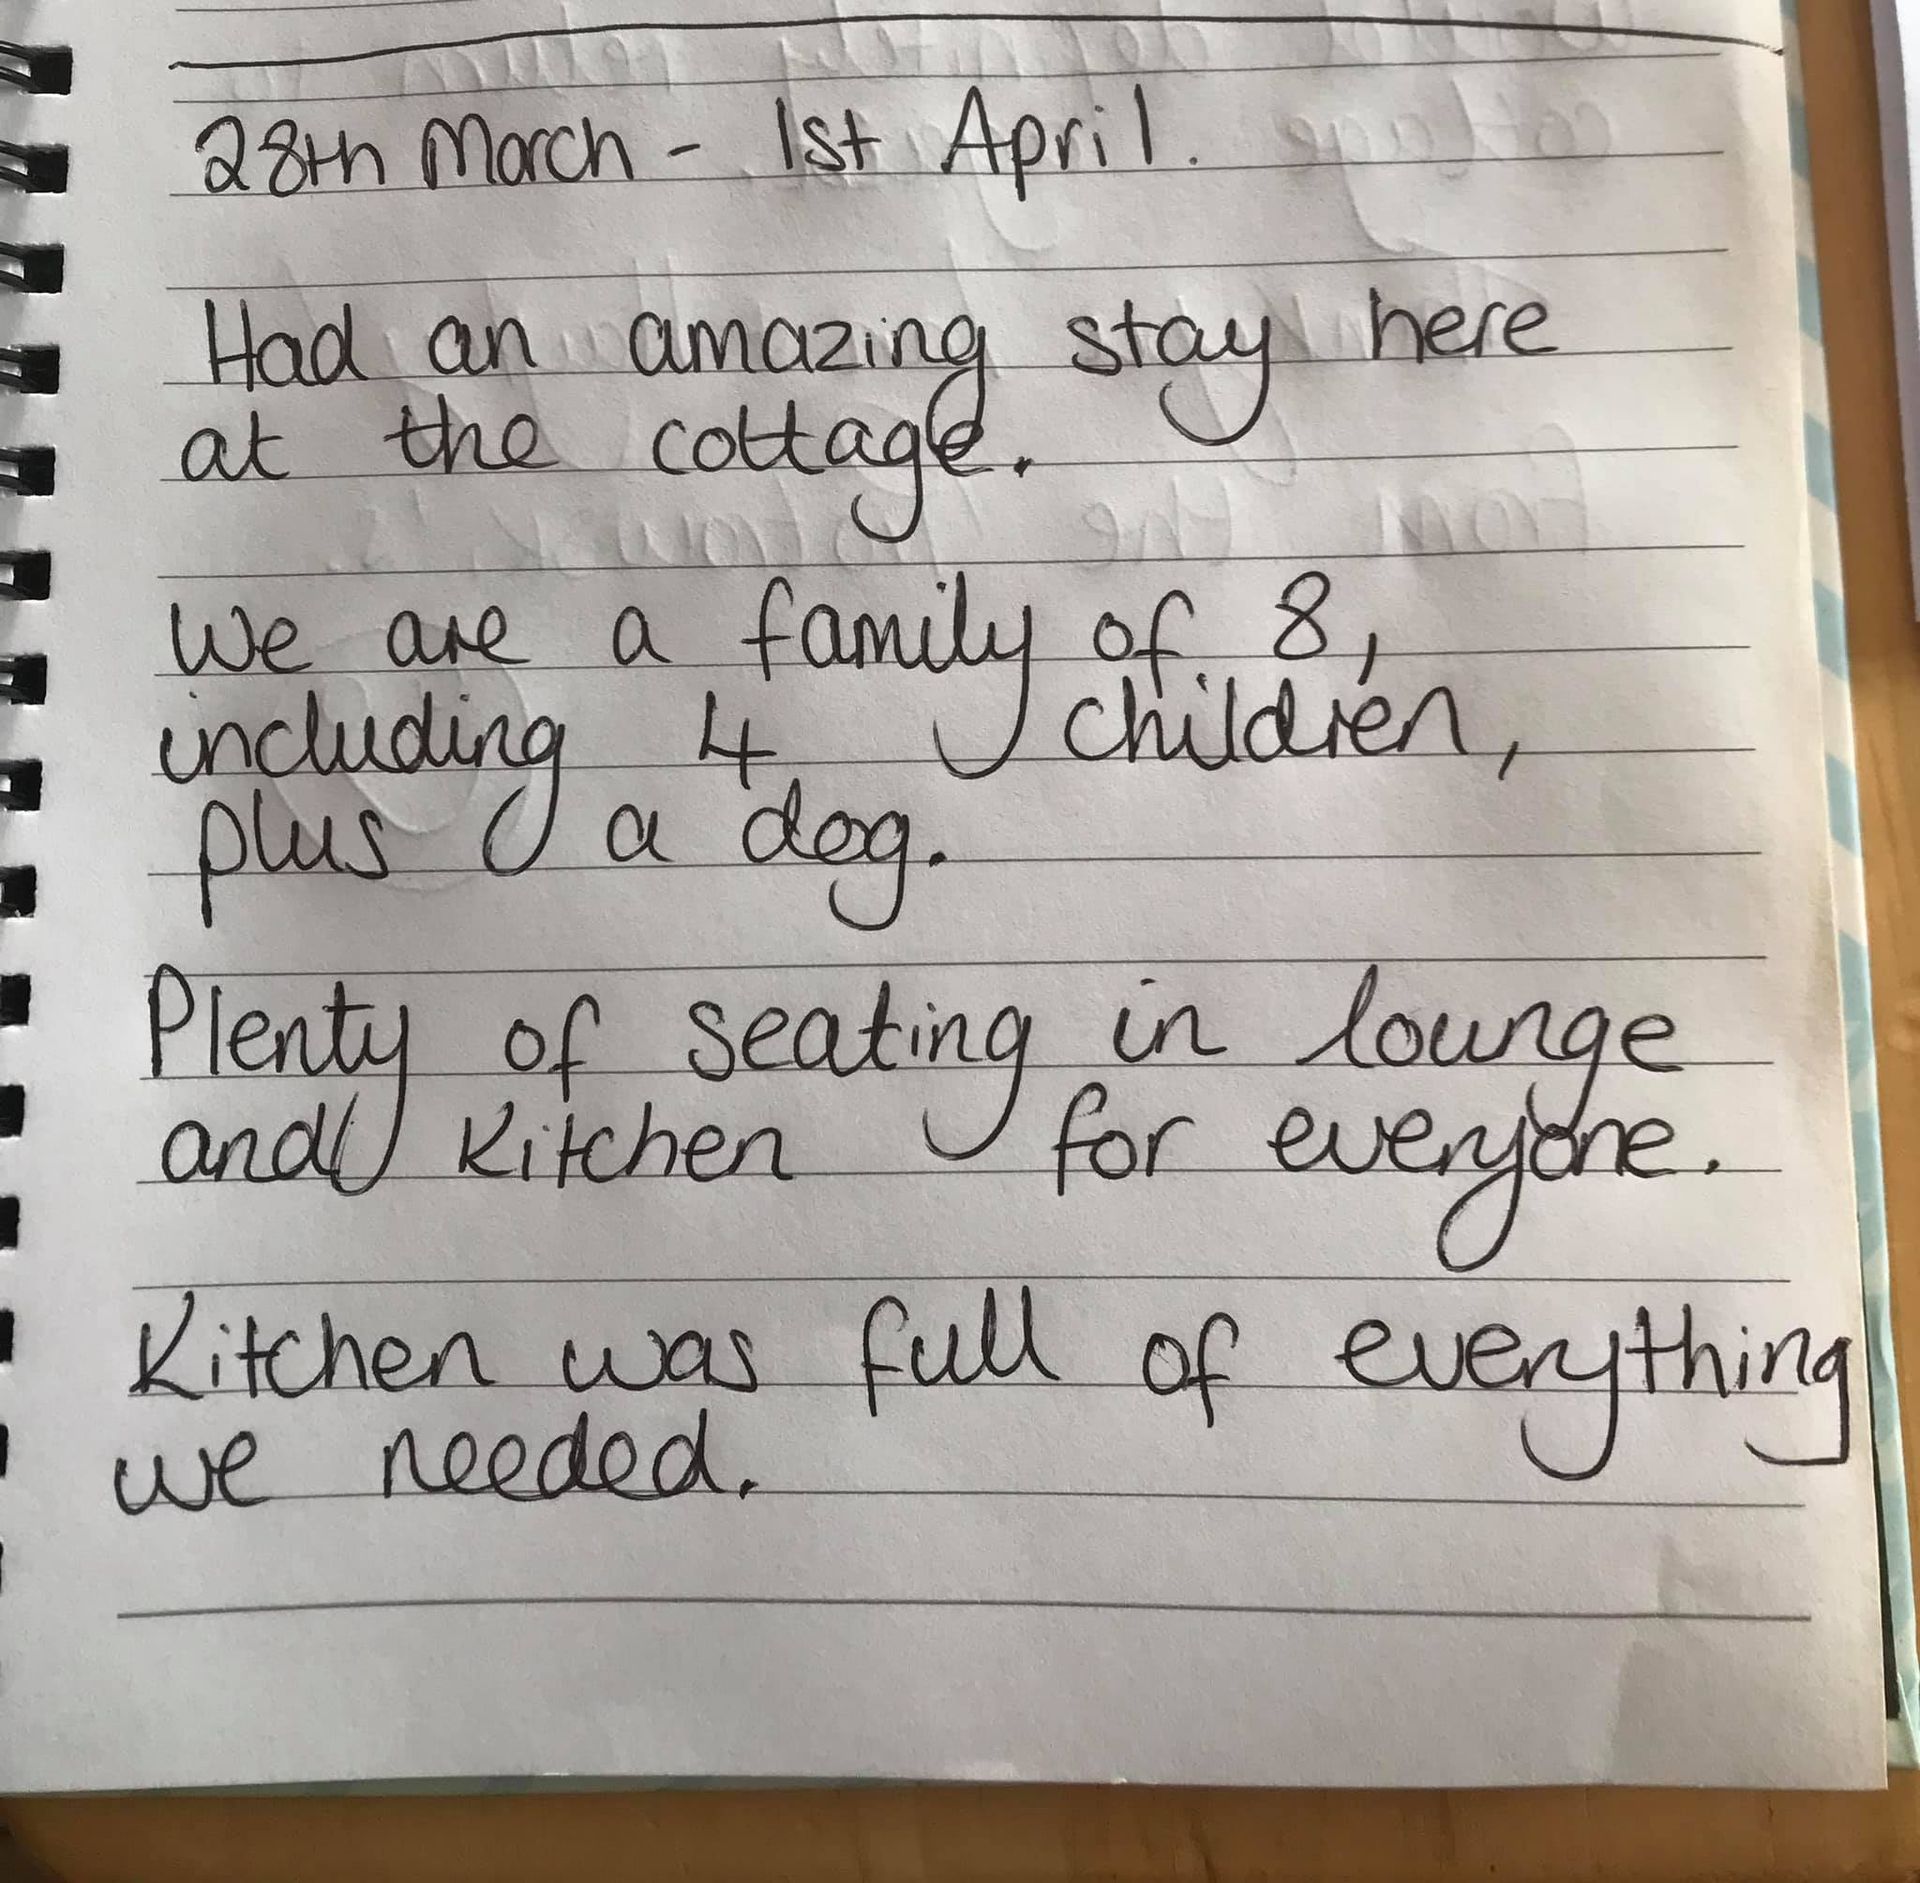 28th March - 1st April.
Had an amazing stay here
at the cottage.
We are a family of 8,
including 4 children,
plus a dog.
Plenty of seating in lounge
and kitchen for everyone.
Kitchen was full of everything
we needed.